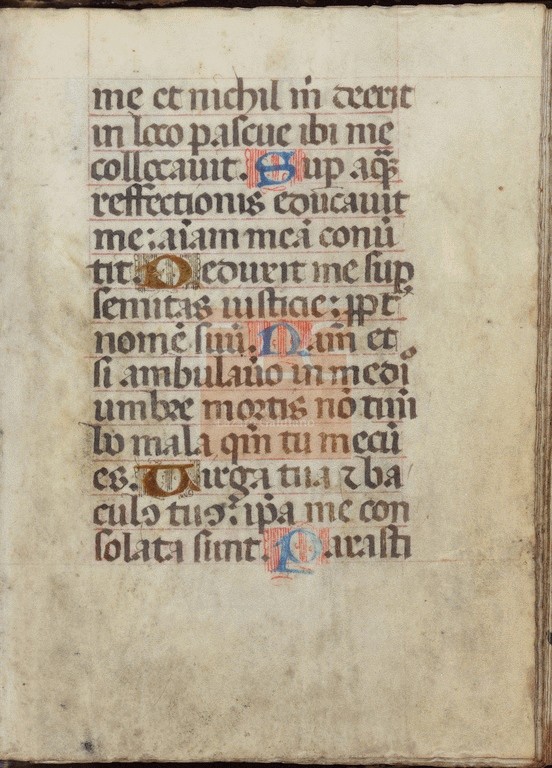 me et nichil m̄ deerit
in loco pascue ibi me
collocauit. Sup aq̄s
reffectionis educauit
me: aīam meā conū
tit. Deduxit me sup
semitas iusticie: ꝓpt̾
nomē suū. Nam̄ et
si ambulauo in medio
umbre mortis nō timē
bo mala qm̄ tu mecū
es. Virga tua ⁊ ba
culꝰ tuꝰ: ip̄a me con
solata sunt. Parasti